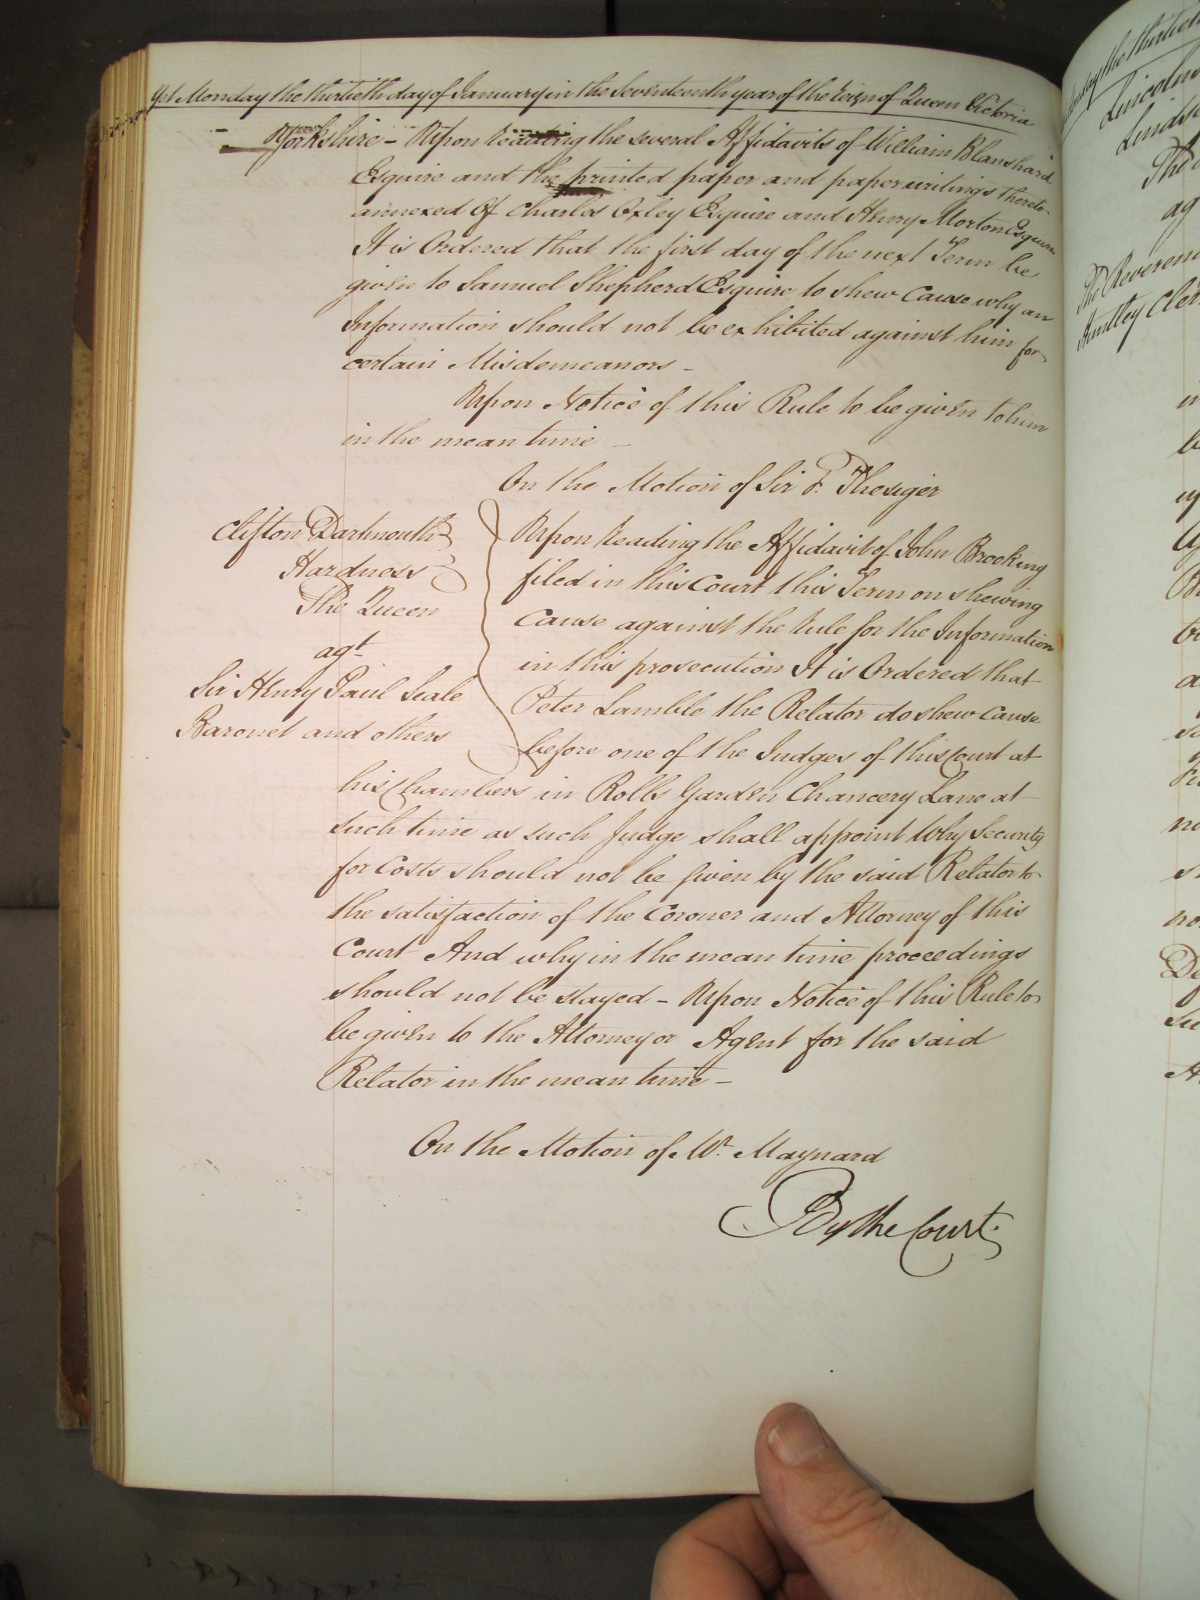 Yet Monday the thirtieth day of January in the Seventeenth year of the Reign of Queen Victoria
Yorkshire – Upon reading the several Affidavits of William Blanshard
Esquire and the printed paper and paper writings thereto
annexed Of Charles Oxley Esquire and Henry Morton Esquire
It is Ordered that the first day of the next Term be
given to Samuel Shepherd Esquire to shew Cause why an
Information should not be exhibited against him for
certain Misdemeanors –
Upon Notice of this Rule to be given to him
in the mean time –
On the Motion of Sir F. Thesiger
Clifton Dartmouth
Hardness
The Queen
agt
Sir Henry Paul Seale
Baronet and others
Upon reading the Affidavit of John Brooking
filed in this Court this Term on shewing
Cause against the Rule for the Information
in this prosecution It is Ordered that
Peter Lamble the Relator do shew cause
before one of the Judges of this Court at
his Chambers in Rolls Garden Chancery Lane at
such time as such Judge shall appoint Why Security
for Costs should not be given by the said Relator to
the satisfaction of the Coroner and Attorney of this
Court And why in the mean time proceedings
should not be stayed – Upon Notice of this Rule to
be given to the Attorney or Agent for the said
Relator in the mean time –
On the Motion of Mr. Maynard
By the Court
the thirtieth
Lincoln
Linds
The
ag
The Reveren
Huntley Cler